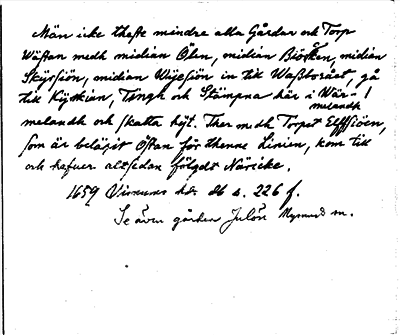 Män icke thesse mindre alla Gårdar och Torp
Wästan medh midian Ölen, midian Biörken, midian
Skÿrsiön, midian Wÿesiön in till Waßboråset, gå
till Kÿrkian, Tingh och Stämpna här i Wär-
melandh
melandh och skatta hÿt. Ther medh Torpet Elffsiöen,
som är beläÿit Östan för thenne Linien, kom till
och hafuer altsedan fölgdt Näricke.
1659 Visnums hd. 26 s. 226 f.
Se även gården Julön Nysund sn.